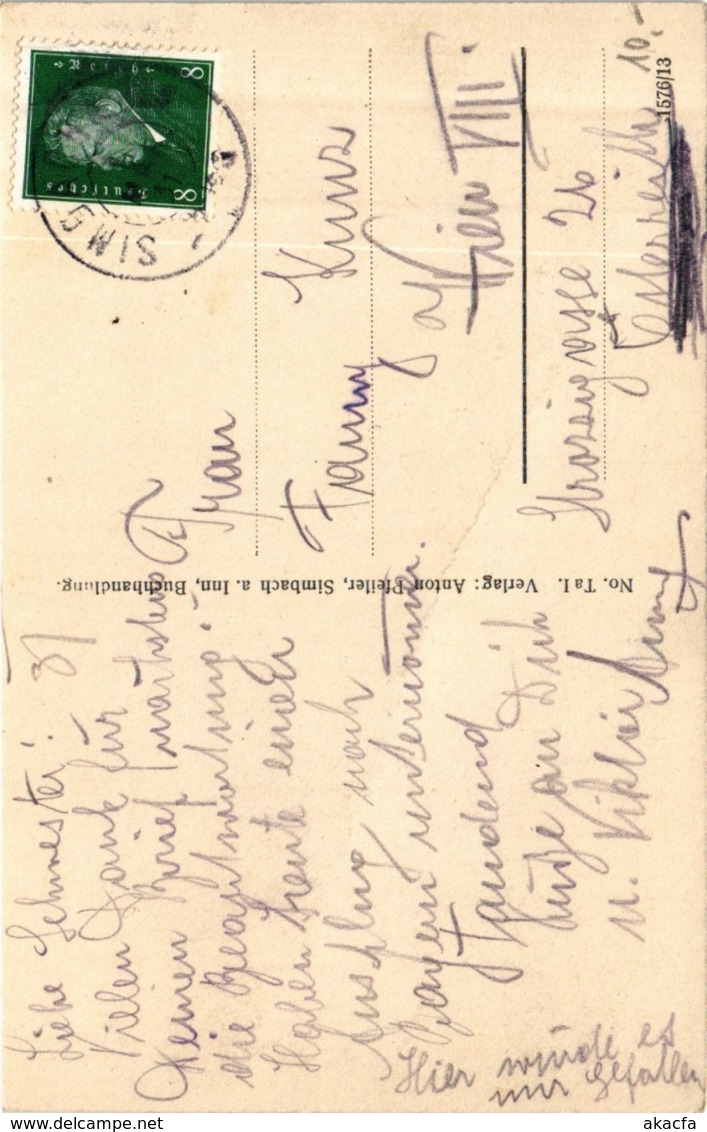 Liebe Schwester!
Vielen Dank für
Deinen Brief nächstens
die Beantwortung.
Haben heute einen
Ausflug nach
Bayern unternommen.
Tausend
Küsse an Dich
u. Viktor
Hier würde es
mir gefallen
No. Ta I. Verlag: Anton Pfeiler, Simbach a. Inn, Buchhandlung.
8 Deutsches Reich 8
SIM
Frau
Fanny Kunz
Wien VIII.
Strozzigasse 26
Österreich
10.-
1576/13
akacfa
akacfa